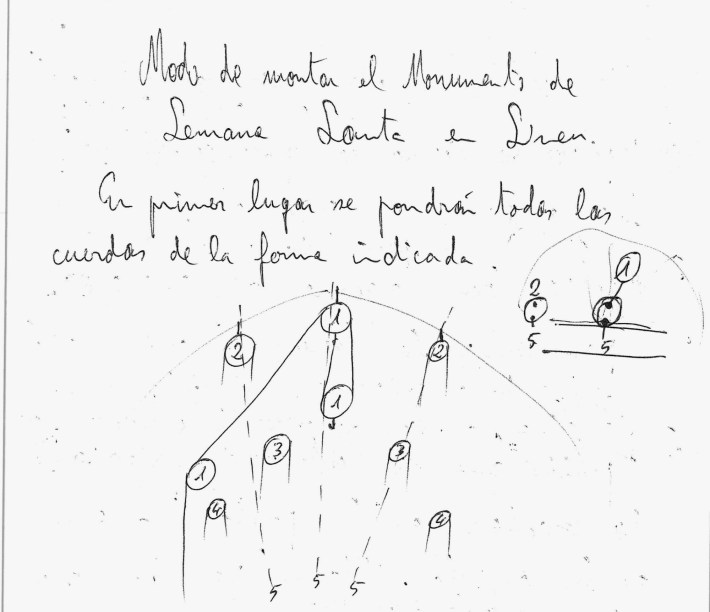 Modo de montar el Monumento de
Semana Santa en
En primer lugar se pondrán todas las
cuerdas de la forma indicada.
1
2
5 5
1
2 2
1
3 3
1
4 4
5 5 5